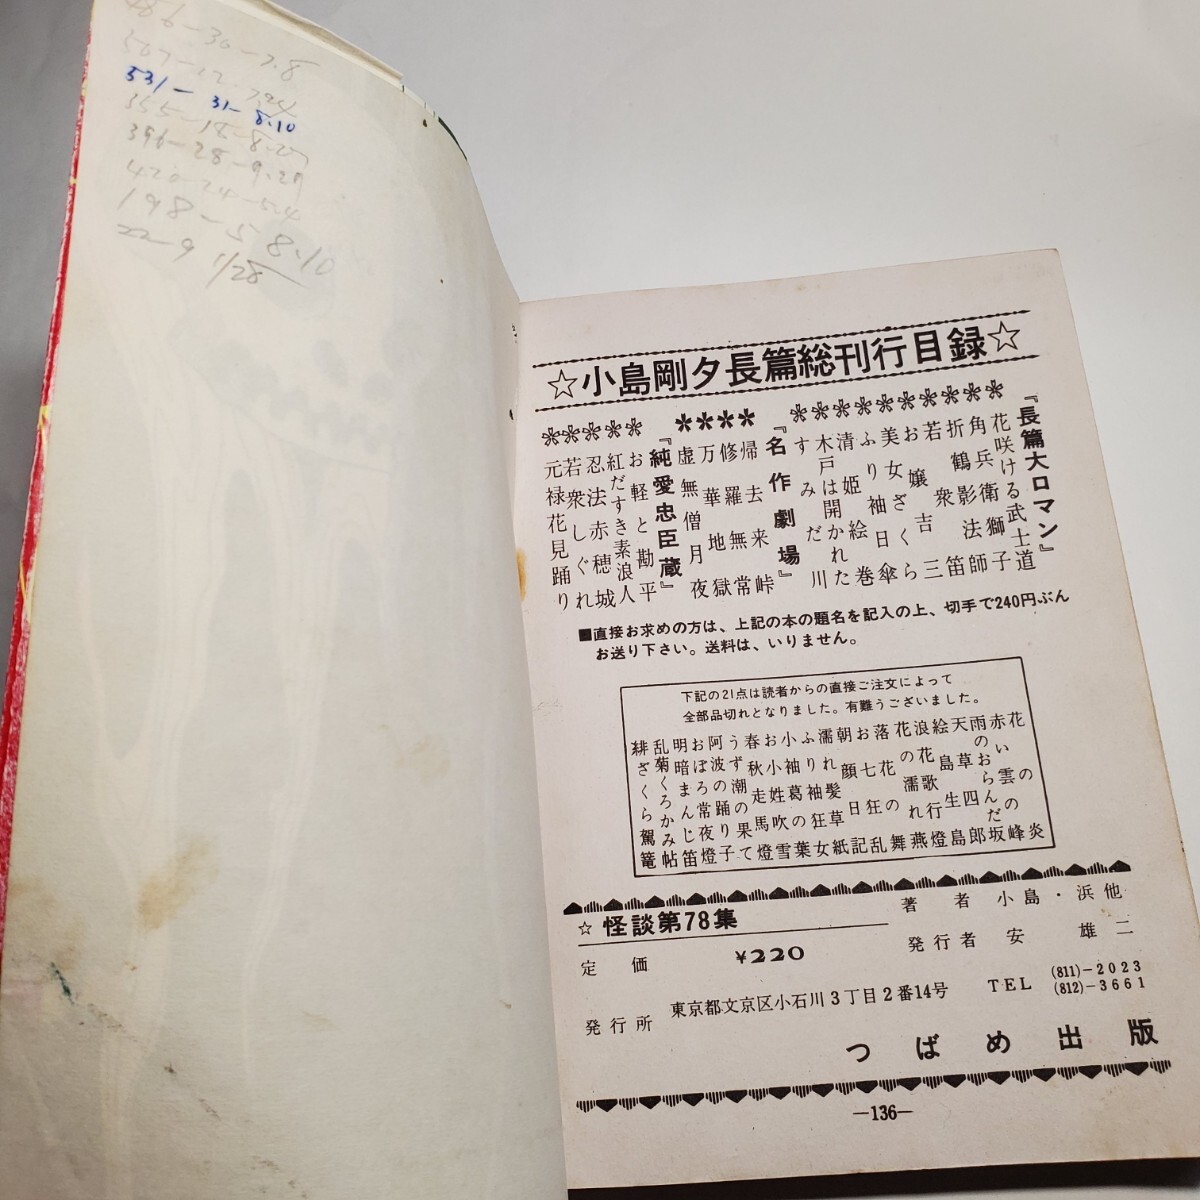 486-30-7.8
531-31-8.10
355-18-8.27
396-28-9.29
420-24-5.4
198-5 8.10
22-9 1/28
☆小島剛夕長篇総刊行目録☆
『長篇大ロマン』
花咲ける武士道
角兵衛獅子
折鶴影法師
若衆笛
お嬢吉三
美女ざくら
ふり袖日傘
清姫絵巻
木戸は開かれた
すみだ川
『名作劇場』
帰去来峠
修羅無常
万華地獄
虚無僧月夜
『純愛忠臣蔵』
お軽と勘平
紅だすき素浪人
忍法赤穂城
若衆しぐれ
元禄花見踊り
■直接お求めの方は、上記の本の題名を記入の上、切手で240円ぶん
お送り下さい。送料は、いりません。
下記の21点は読者からの直接ご注文によって
全部品切れとなりました。有難うございました。
花の炎
赤い雲の峰
雨のおらんだ坂
天草四郎
絵島生島
浪花歌行燈
花の濡れ燕
落花の舞
お七狂乱
朝顔日記
濡れ髪草紙
ふり袖狂女
小袖葛の葉
お小姓吹雪
春秋走馬燈
うず潮の果て
阿波の踊り子
おぼろ常夜燈
明暗まんじ笛
乱菊くろかみ帖
緋ざくら駕篭
☆ 怪談第78集
著者 小島・浜他
定価 ¥220
発行者 安雄二
発行所 東京都文京区小石川3丁目2番14号
TEL (811)-2023
(812)-3661
つばめ出版
—136—